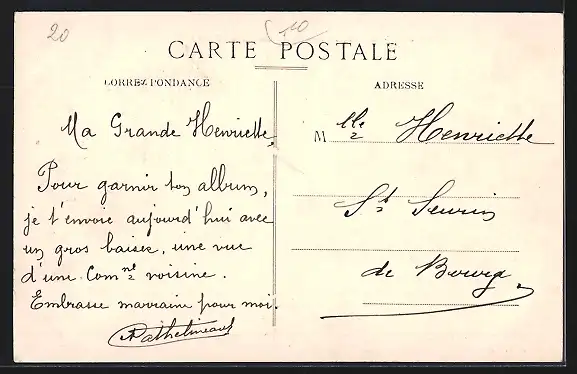 20
10
CARTE POSTALE
CORRESPONDANCE
ADRESSE
Ma Grande Henriette,
Pour garnir ton album,
je t'envoie aujourd'hui avec
un gros baiser, une vue
d'une Com^ne voisine.
Embrasse marraine pour moi.
M lle Henriette
St Seurin
de Bourg